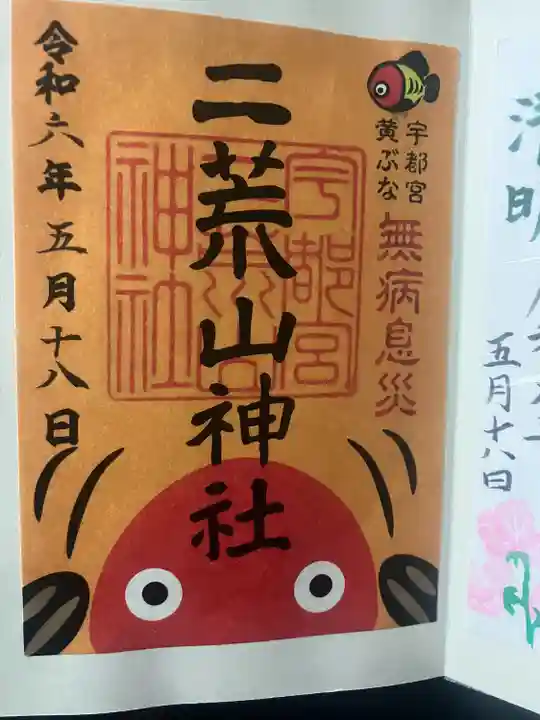 五月十八日
宇都宮
黄ぶな
無病息災
二荒山神社
宇都宮
二荒山
神社
令和六年五月十八日